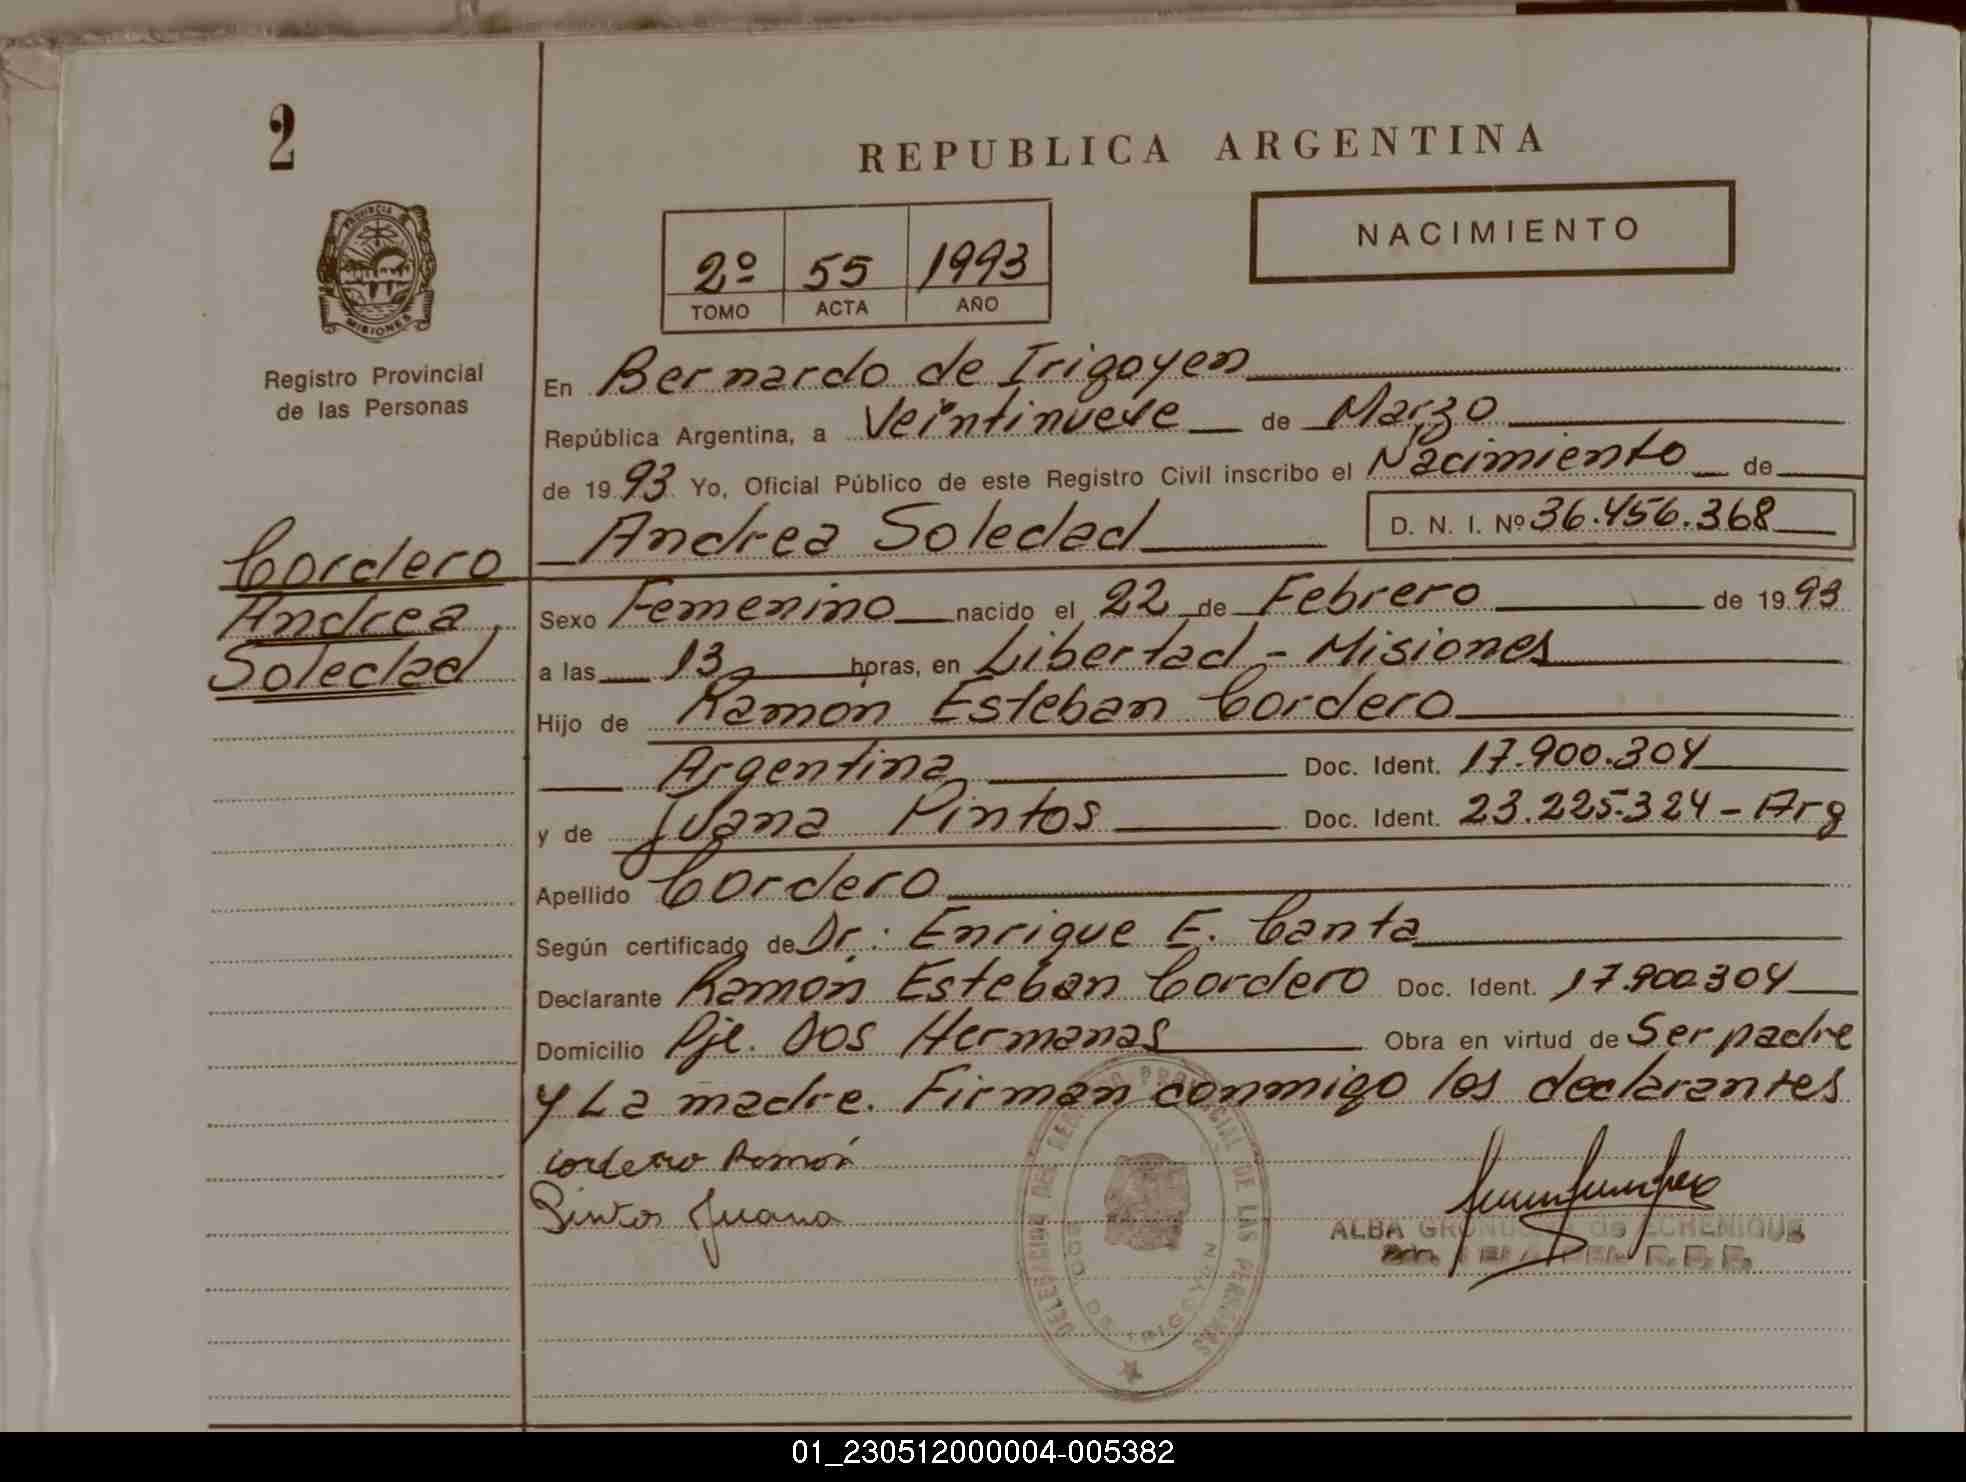 2
REPUBLICA ARGENTINA
NACIMIENTO
2º 55 1993
TOMO ACTA AÑO
PROVINCIA
MISIONES
Registro Provincial
de las Personas
En Bernardo de Irigoyen
República Argentina, a Veintinueve de Marzo
de 1993 Yo, Oficial Público de este Registro Civil inscribo el Nacimiento de
Andrea Soledad D. N. I. Nº 36.456.368
Cordero
Andrea
Soledad
Sexo Femenino nacido el 22 de Febrero de 1993
a las 13 horas, en Libertad - Misiones
Hijo de Ramón Esteban Cordero
Argentina Doc. Ident. 17.900.304
y de Juana Pintos Doc. Ident. 23.225.324 - Arg
Apellido Cordero
Según certificado de Dr: Enrique E. Canta
Declarante Ramón Esteban Cordero Doc. Ident. 17.900.304
Domicilio Pje. Dos Hermanas Obra en virtud de Ser padre
y La madre. Firman conmigo los declarantes
Cordero Ramón
Pintos Juana
DELEGACION DEL REGISTRO PROVINCIAL DE LAS PERSONAS
BDO. DE IRIGOYEN
ALBA de ECHENIQUE
01_230512000004-005382